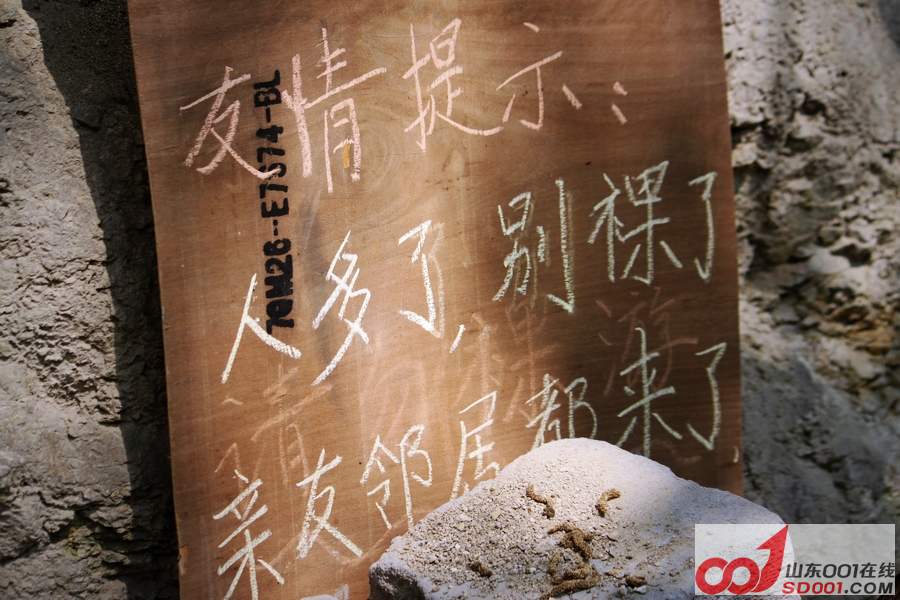 友情提示:
人多了,别裸了
亲友邻居都来了
70M26--E7674-BL
001 山东001在线
SD001.COM